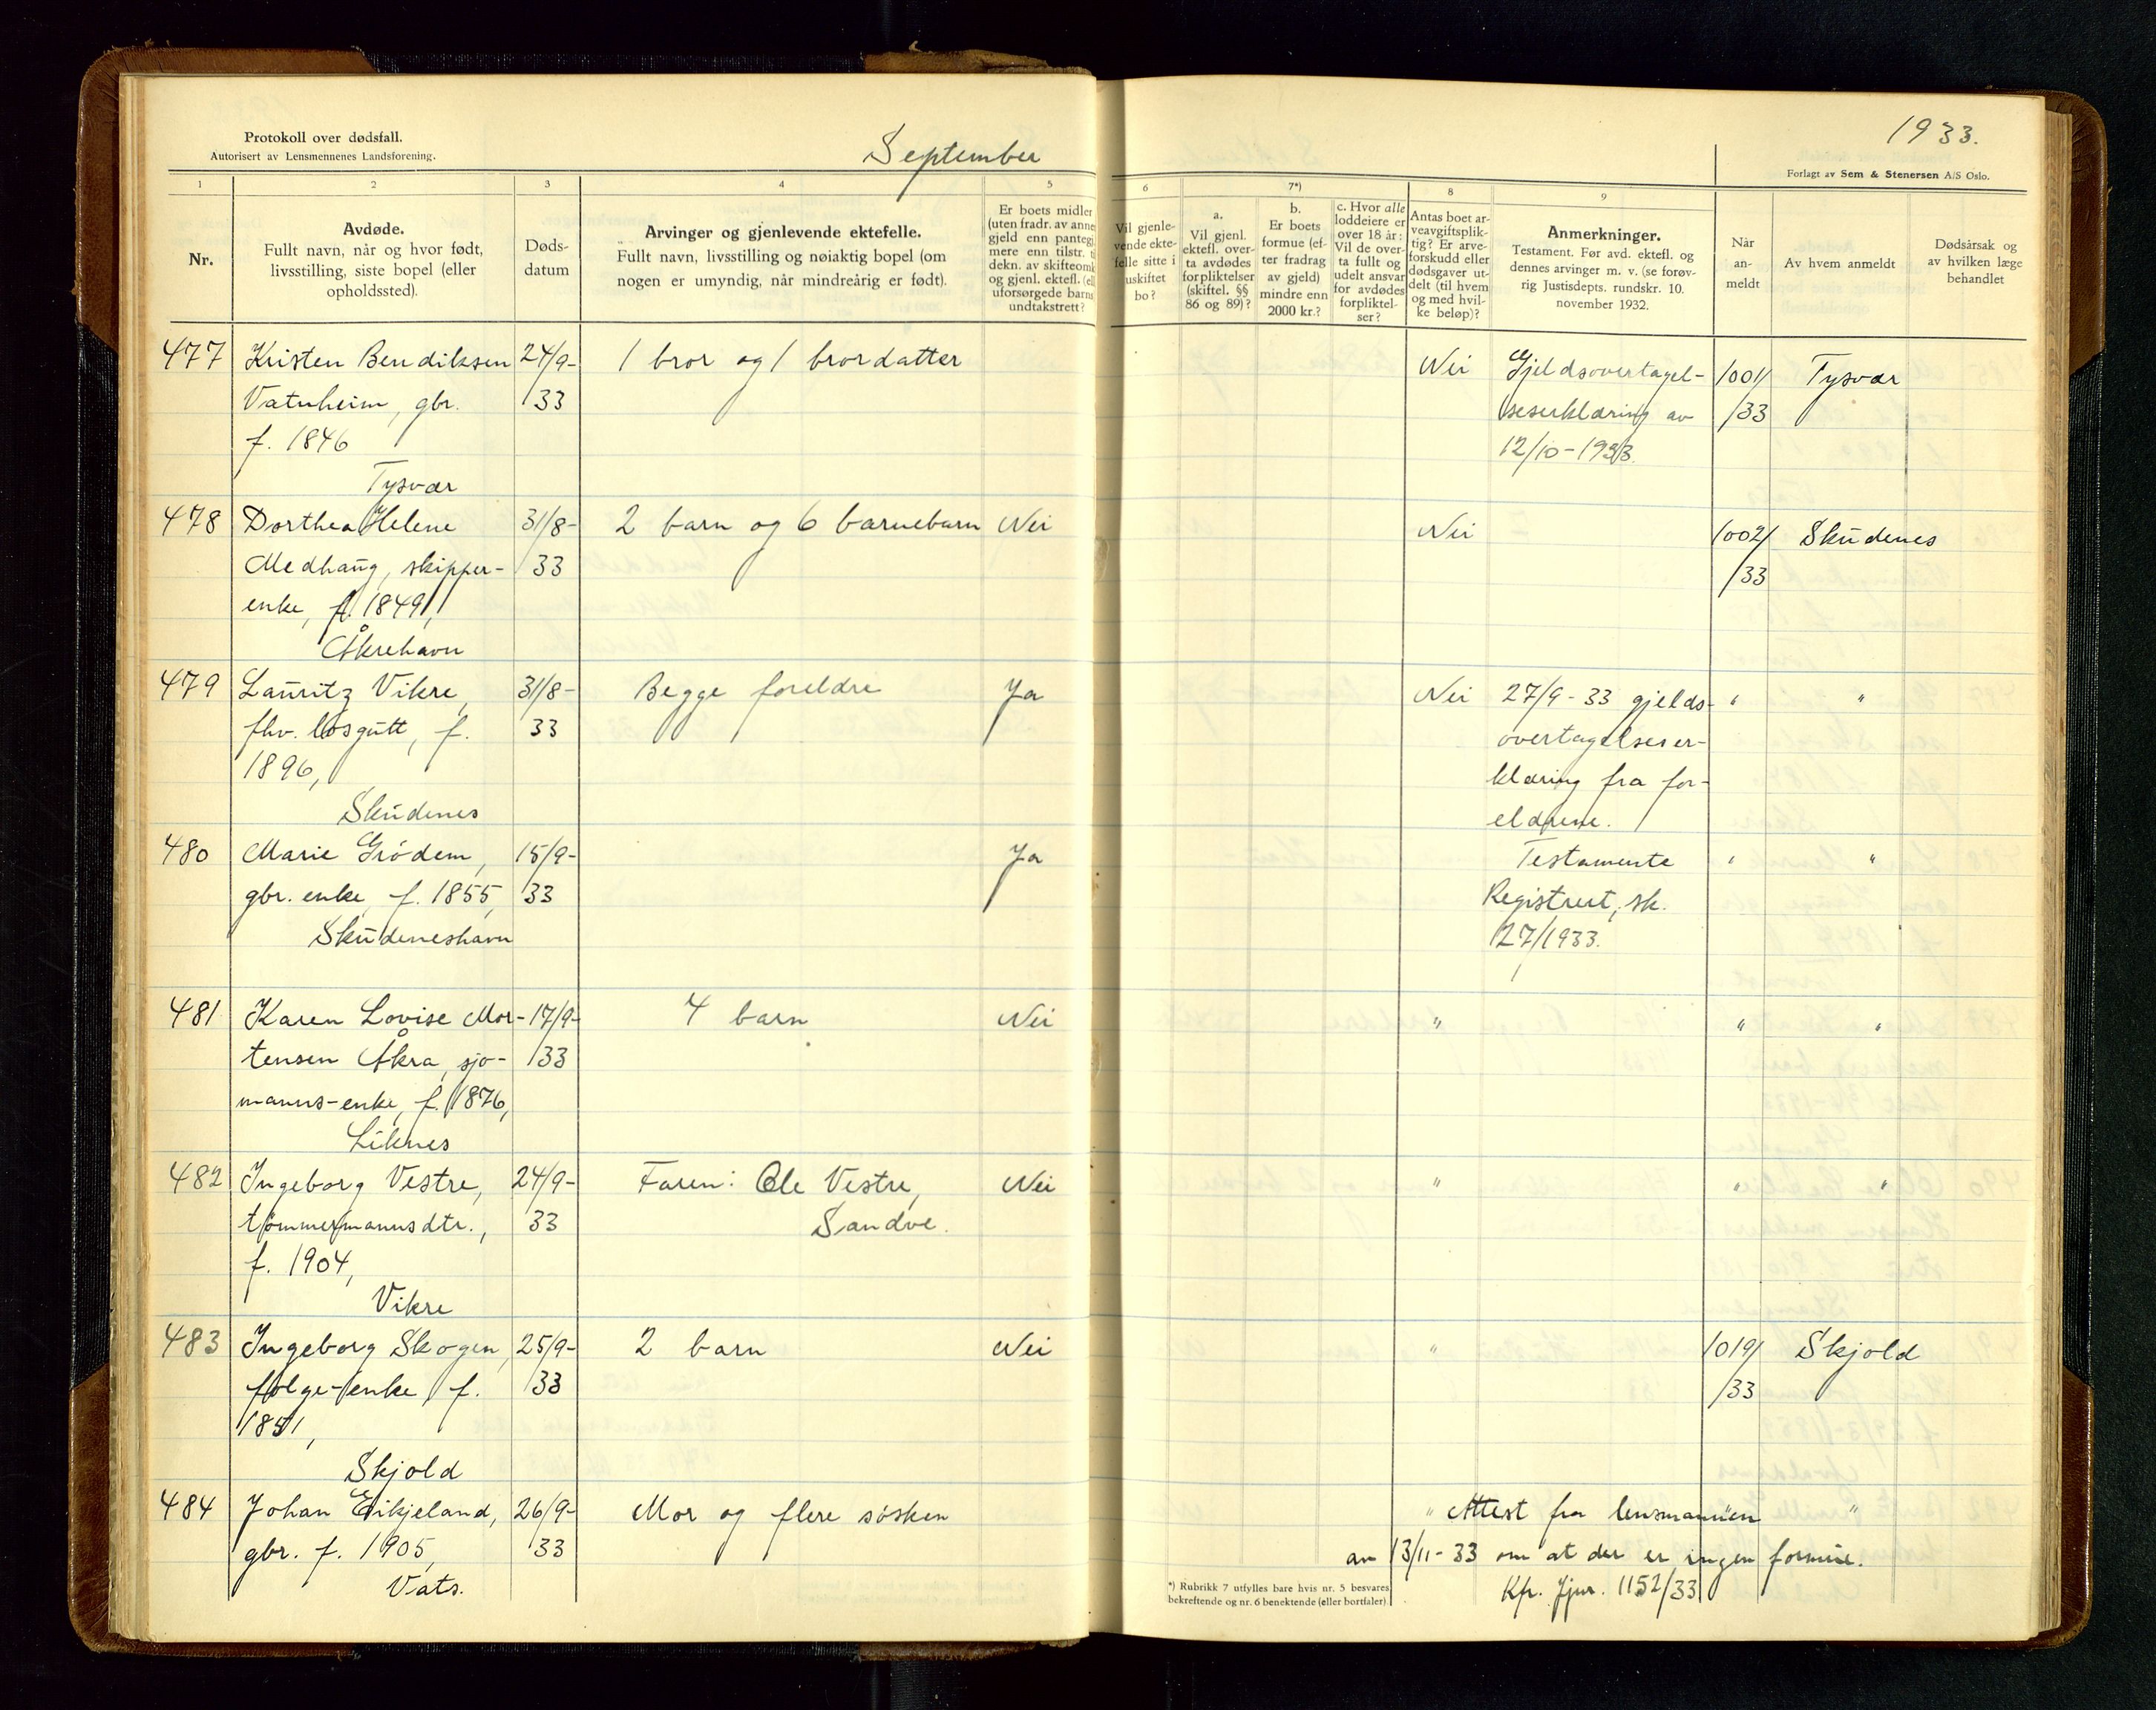 Protokoll over dødsfall.
Autorisert av Lensmennenes Landsforening.
September
1933.
Forlagt av Sem & Stenersen A/S Oslo.
1 2 3 4 5 6 7*) 8 9
Nr.
Avdøde.
Fullt navn, når og hvor født,
livsstilling, siste bopel (eller
opholdssted).
Døds-
datum
Arvinger og gjenlevende ektefelle.
Fullt navn, livsstilling og nøiaktig bopel (om
nogen er umyndig, når mindreårig er født).
Er boets midler
(uten fradr. av annen
gjeld enn pantegj.
mere enn tilstr. t
dekn. av skifteomk
og gjenl. ektef. (el
uforsørgede barns
undtakstrett?
Vil gjenle-
vende ekte-
felle sitte i
uskiftet
bo?
a.
Vil gjenl.
ektefl. over-
ta avdødes
forpliktelser
(skiftel. §§
86 og 89)?
b.
Er boets
formue (ef-
ter fradrag
av gjeld)
mindre enn
2000 kr.?
c. Hvor alle
loddeiere er
over 18 år:
Vil de over-
ta fullt og
udelt ansvar
for avdødes
forpliktel-
ser?
Antas boet ar-
veavgiftsplik-
tig? Er arve-
forskudd eller
dødsgaver ut-
delt (til hvem
og med hvil-
ke beløp)?
Anmerkninger.
Testament. Før avd. ektefl. og
dennes arvinger m. v. (se forøv-
rig Justisdepts. rundskr. 10.
november 1932.
Når
an-
meldt
Av hvem anmeldt
Dødsårsak og
av hvilken læge
behandlet
477 Kristen Bendiksen 24/9- 1 bror og 1 brordatter Nei Gjeldsovertagel- 1001/ Tysvær
Vatnheim, gbr. 33 seserklæring av /33
f. 1846 12/10-1933.
Tysvær
478 Dorthea Helene 31/8- 2 barn og 6 barnebarn Nei Nei – 1002/ Skudenes
Medhaug, skipper- 33 /33
enke, f. 1849,
Åkrehavn
479 Lauritz Vikre, 31/8- Begge foreldre Ja Nei 27/9-33 gjelds- " "
fhv. losgutt, f. 33 overtagelseser-
1896, klæring fra for-
Skudenes eldrene.
480 Marie Grødem, 15/9- Ja Testamente " "
gbr. enke f. 1855, 33 Registrert, sk.
Skudeneshavn 27/1933.
481 Karen Lovise Mor- 17/9- 4 barn Nei " " "
tensen Åkra, sjø- 33
manns-enke, f. 1876,
Liknes
482 Ingeborg Vestre, 24/9- Faren: Ole Vestre, Nei " " "
tømmermannsdtr., 33 Sandve.
f. 1904,
Vikre
483 Ingeborg Skogen, 25/9- 2 barn Nei " 1019/ Skjold
følge-enke, f. 33 /33
1851,
Skjold
484 Johan Eikjeland, 26/9- Mor og flere søsken " Attest fra lensmannen " "
gbr. f. 1905, 33 av 13/11-33 om at der er ingen formue.
Vats. Kfr. Jjnr. 1152/33
*) Rubrikk 7 utfylles bare hvis nr. 5 besvares
bekreftende og nr. 6 benektende (eller bortfaler).